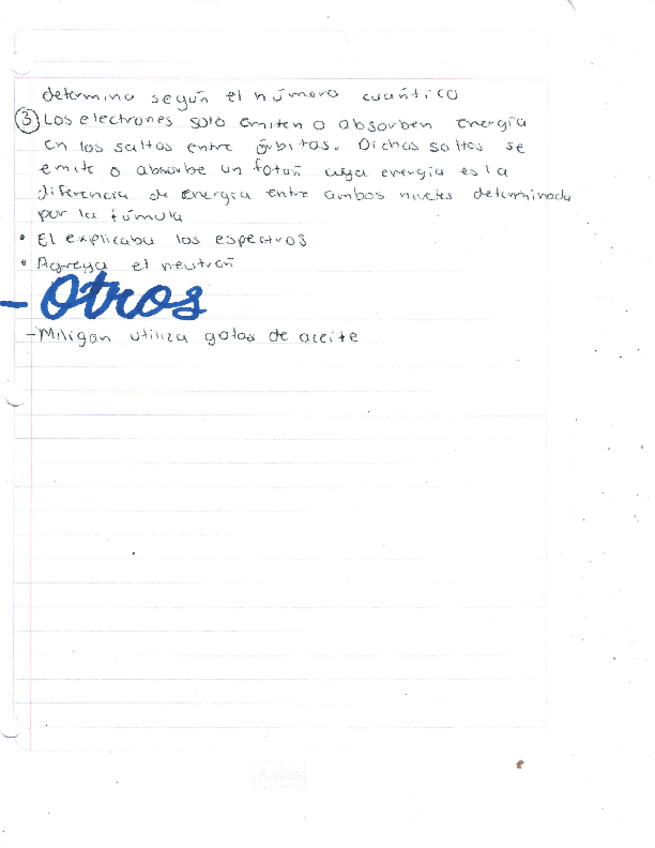 determina según el número cuántico
③ Los electrones solo emiten o absorben energía
en los saltos entre órbitas. Dichos saltos se
emite o absorbe un fotón cuya energía es la
diferencia de energía entre ambos niveles determinada
por la fórmula
• El explicaba los espectros
• Agrega el neutrón
- Otros
- Miligan utiliza gotas de aceite
Scribe